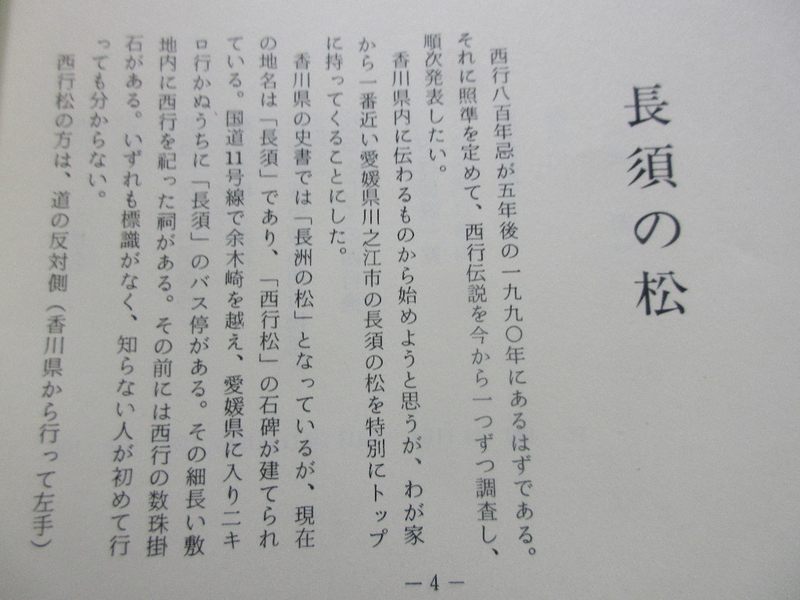 長須の松
西行八百年忌が五年後の一九九〇年にあるはずである。
それに照準を定めて、西行伝説を今から一つずつ調査し、
順次発表したい。
香川県内に伝わるものから始めようと思うが、わが家
から一番近い愛媛県川之江市の長須の松を特別にトップ
に持ってくることにした。
香川県の史書では「長洲の松」となっているが、現在
の地名は「長須」であり、「西行松」の石碑が建てられ
ている。国道11号線で余木崎を越え、愛媛県に入り二キ
ロ行かぬうちに「長須」のバス停がある。その細長い敷
地内に西行を祀った祠がある。その前には西行の数珠掛
石がある。いずれも標識がなく、知らない人が初めて行
っても分からない。
西行松の方は、道の反対側（香川県から行って左手）
— 4 —